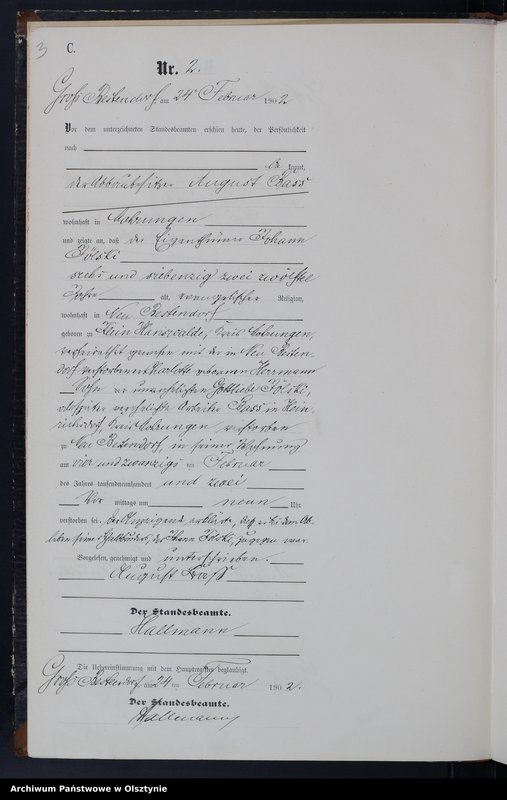 3
C.
Nr. 2.
Groß Bestendorf, am 24ten Februar 1902
Vor dem unterzeichneten Standesbeamten erschien heute, der Persönlichkeit
nach
be kannt,
der August Bass
wohnhaft in Mohrungen
und zeigte an, daß der Eigenthümer Johann
Fölski
sechs und siebenzig zwei zwölftel
Jahre alt, evangelischer Religion,
wohnhaft in Neu Bestendorf
geboren zu Klein Hanswalde, Kreis Mohrungen,
verheirathet gewesen mit der in Neu Besten-
dorf verstorbenen Charlotte geborenen Herrmann
Sohn der unverehelichten Gottliebe Fölski,
später verehelichte Arbeiter Bass in
Kreis Mohrungen verstorben
zu Neu Bestendorf, in seiner Wohnung
am vier und zwanzigs ten Februar
des Jahres tausendneunhundert und zwei
Vor mittags um neun Uhr
verstorben sei. Der Anzeigende erklärte, daß er bei dem Ab-
leben seines Johann Fölski, zugegen war.
Vorgelesen, genehmigt und unterschrieben.
August Bass
Der Standesbeamte.
Hallmann
Die Uebereinstimmung mit dem Hauptregister beglaubigt.
Groß Bestendorf, am 24 ten Februar 1902.
Der Standesbeamte.
Hallmann
Archiwum Państwowe w Olsztynie